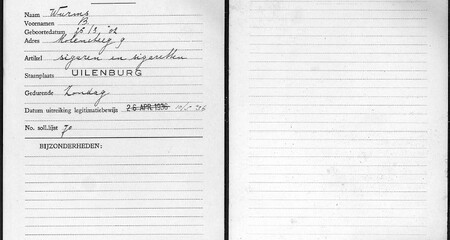 Naam Wurms
Voornamen B.
Geboortedatum 16/3 '02
Adres Molensteeg 9
Artikel sigaren en sigaretten
Staanplaats UILENBURG
Gedurende Zondag
Datum uitreiking legitimatiebewijs 26 APR 1936
No. soll.lijst 70
BIJZONDERHEDEN: